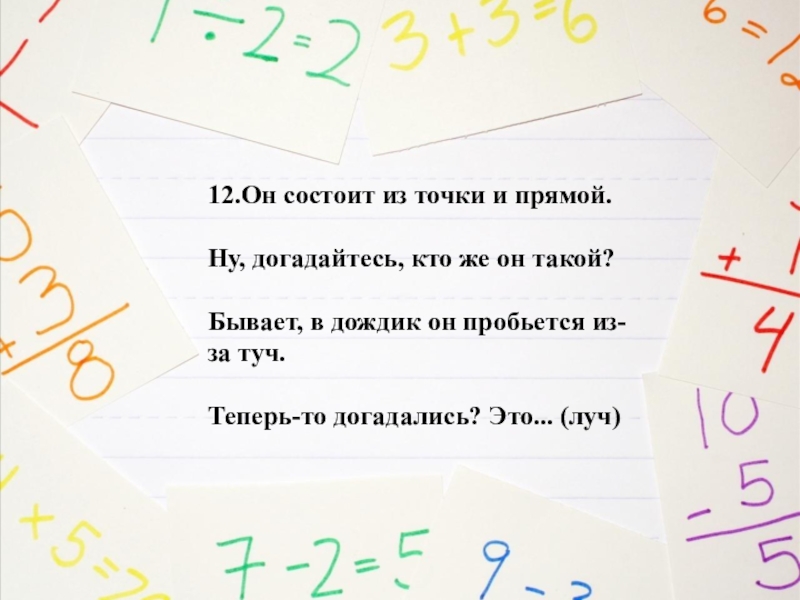 1 ÷ 2 = 2
3 + 3 = 6
6 =
12.Он состоит из точки и прямой.
Ну, догадайтесь, кто же он такой?
Бывает, в дождик он пробьется из-
за туч.
Теперь-то догадались? Это... (луч)
3
+
8
+
4
10
- 5
5
+ 5 =
7 - 2 = 5
9 -